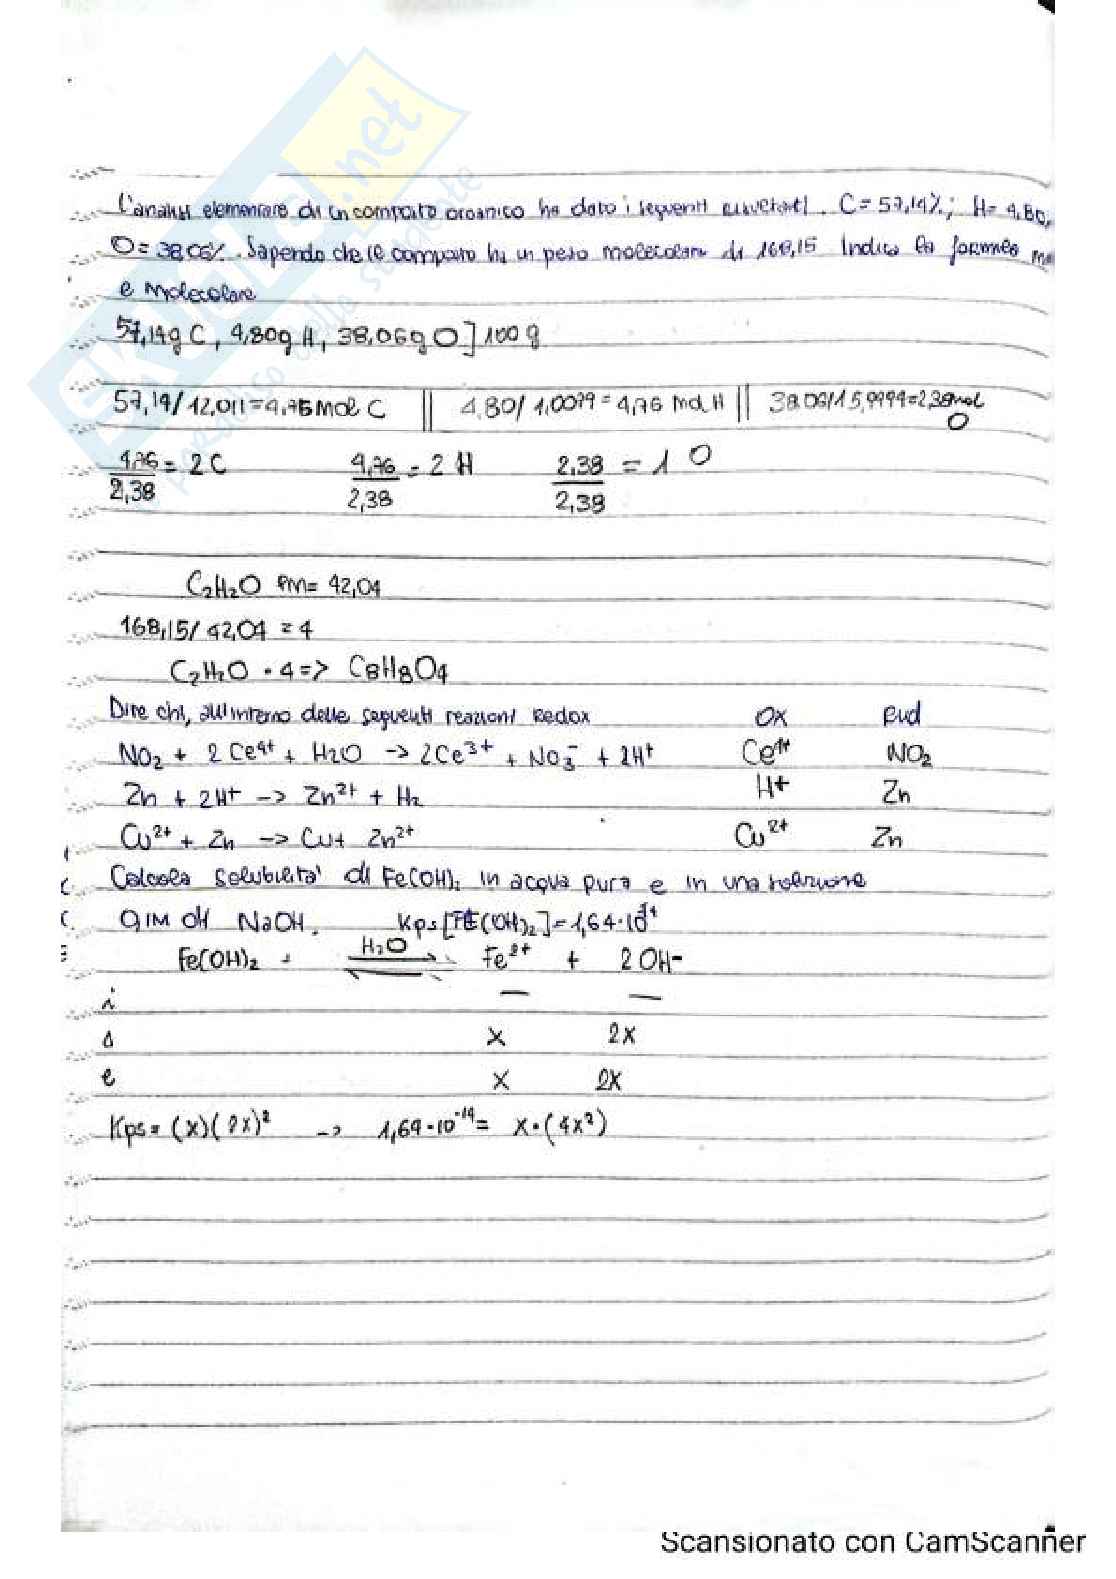 L'analisi elementare di un composto organico ha dato i seguenti risultati. C=57,14%; H=4,80,
O=38,06%. Sapendo che il composto ha un peso molecolare di 168,15 Indica la formula
e Molecolare
57,14g C, 4,80g H, 38,06g O] 100 g
57,14/12,011=4,76 mol C || 4,80/1,0079=4,76 mol H || 38,06/15,9994=2,38 mol O
4,76/2,38 = 2 C 4,76/2,38 = 2 H 2,38/2,38 = 1 O
C₂H₂O PM= 42,04
168,15/42,04 = 4
C₂H₂O • 4 => C8H8O4
Dire chi, all'interno delle seguenti reazioni Redox OX Rid
NO₂ + 2 Ce⁴⁺ + H2O -> 2Ce³⁺ + NO₃⁻ + 2H⁺ Ce⁴⁺ NO₂
Zn + 2H⁺ -> Zn²⁺ + H₂ H+ Zn
Cu²⁺ + Zn -> Cu + Zn²⁺ Cu²⁺ Zn
Calcola solubilità di Fe(OH)₂ in acqua pura e in una soluzione
0,1M di NaOH. Kps[Fe(OH)₂]=1,64•10
Fe(OH)₂ H₂O ⇌ Fe²⁺ + 2 OH-
i — —
Δ x 2x
e x 2x
Kps = (x)(2x)² -> 1,64•10⁻¹⁴ = x•(4x²)
SKUOLA.net
Scansionato con CamScanner